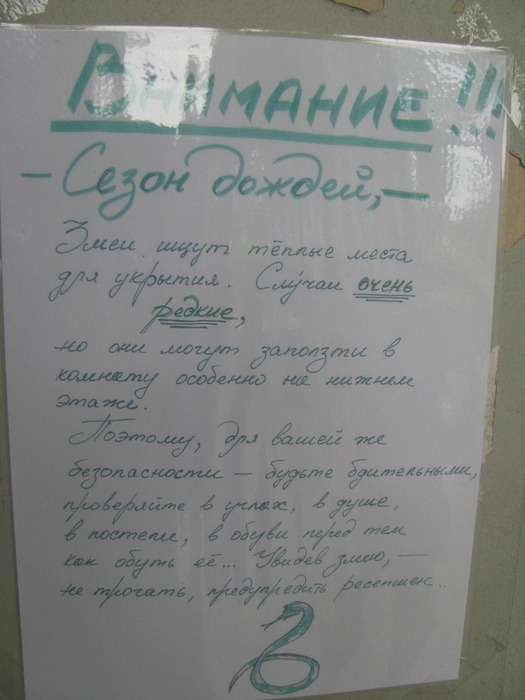 Внимание!!!
- Сезон дождей, -
Змеи ищут тёплые места
для укрытия. Случаи очень
редкие,
но они могут заползти в
комнату особенно на нижнем
этаже.
Поэтому, для вашей же
безопасности - будьте бдительными,
проверяйте в углах, в душе,
в постели, в обуви перед тем
как обуть её... Увидев змею, -
не трогать, предупредить ресепшен..